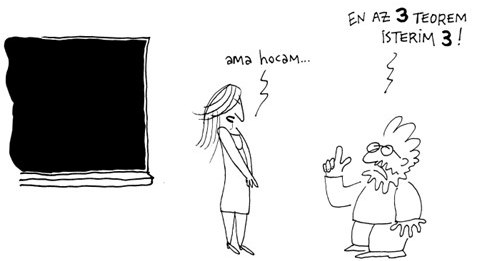 ama hocam...
EN AZ 3 TEOREM
İSTERİM 3!